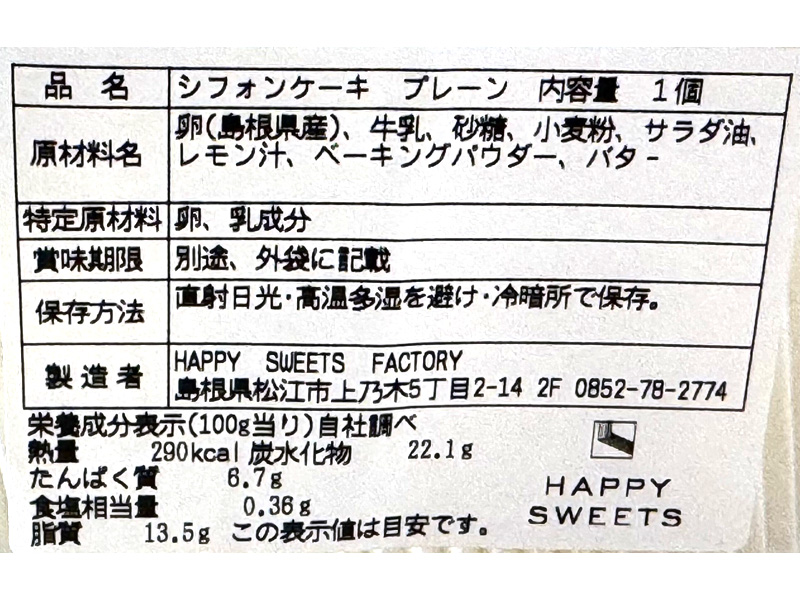 品名 シフォンケーキ プレーン 内容量 1個
原材料名 卵(島根県産)、牛乳、砂糖、小麦粉、サラダ油、
レモン汁、ベーキングパウダー、バター
特定原材料 卵、乳成分
賞味期限 別途、外袋に記載
保存方法 直射日光・高温多湿を避け・冷暗所で保存。
製造者 HAPPY SWEETS FACTORY
島根県松江市上乃木5丁目2-14 2F 0852-78-2774
栄養成分表示(100g当り)自社調べ
熱量 290kcal 炭水化物 22.1g
たんぱく質 6.7g
食塩相当量 0.36g
脂質 13.5g この表示値は目安です。
HAPPY
SWEETS